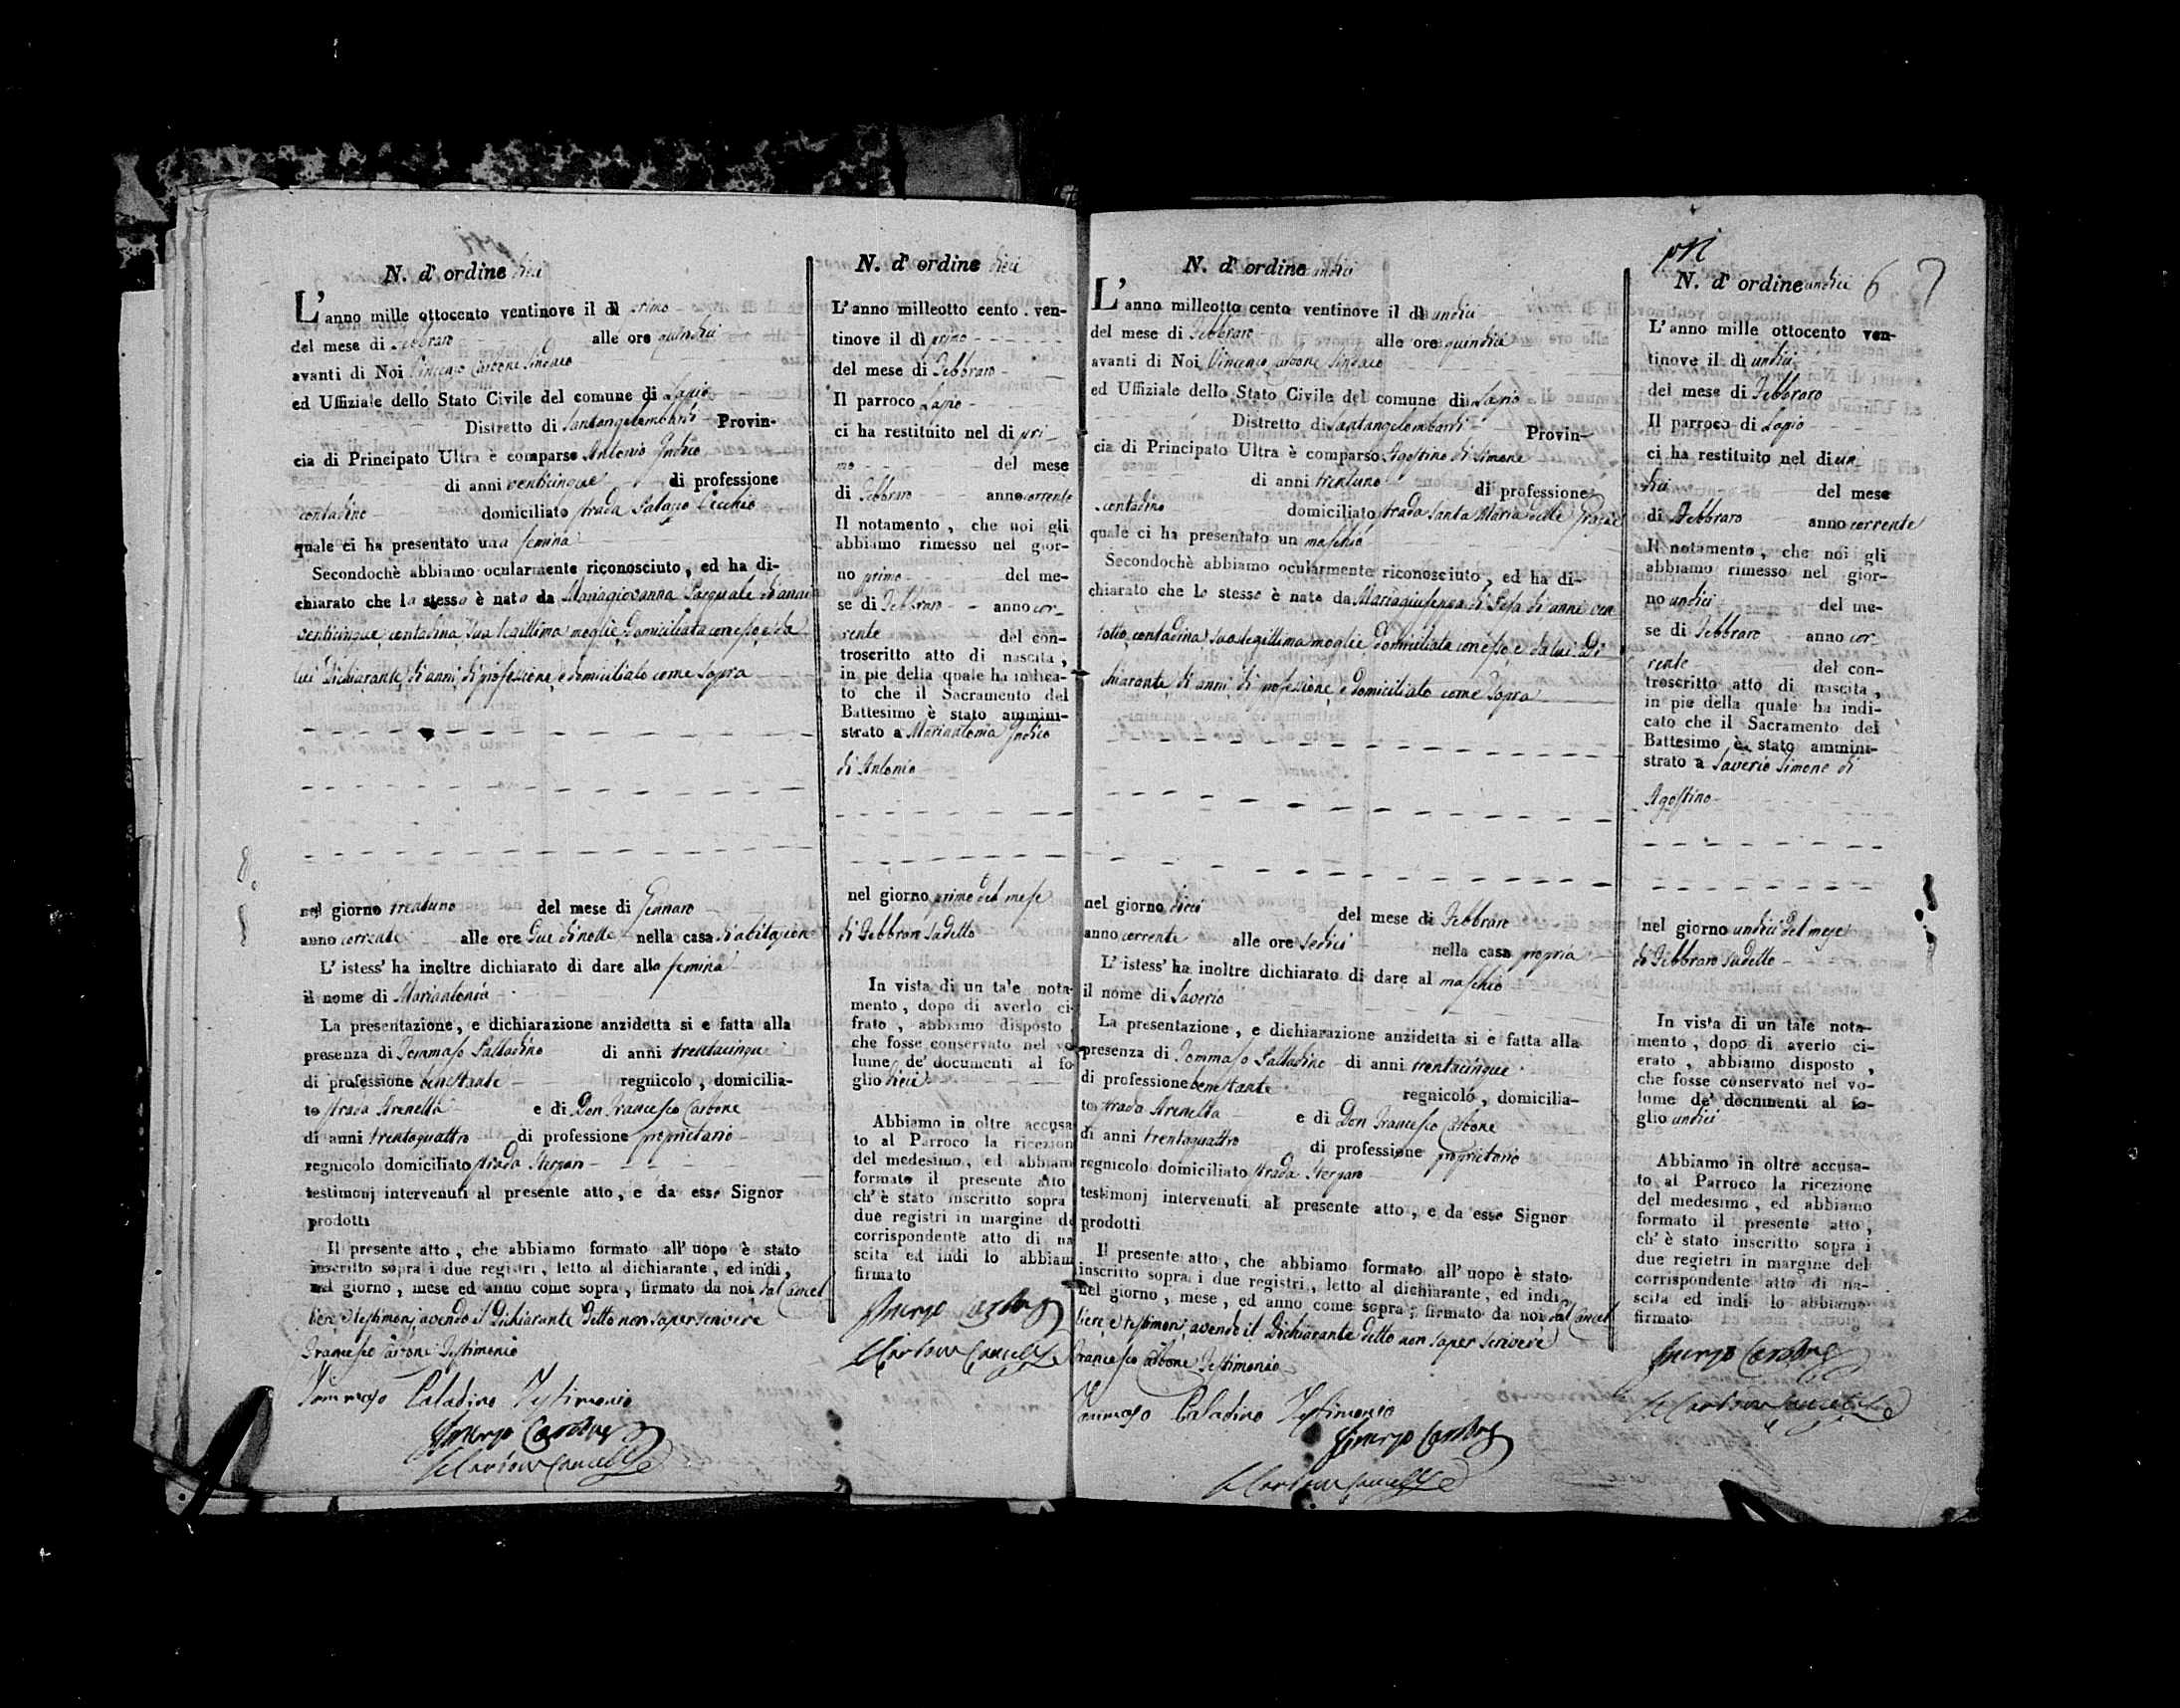 N. d' ordine dieci
L' anno mille ottocento ventinove il dì primo
del mese di Febbraro alle ore quindici
avanti di Noi Vincenzo Carbone Sindaco
ed Uffiziale dello Stato Civile del comune di Lapio
Distretto di Santangelombardi Provin-
cia di Principato Ultra è comparso Antonio Indico
di anni venticinque di professione
contadino domiciliato strada Palazzo Vecchio
quale ci ha presentato una femina
Secondochè abbiamo ocularmente riconosciuto, ed ha di-
chiarato che la stessa è nata da Mariagiovanna Pasquale di anni
venticinque, contadina, sua legittima moglie domiciliata con esso, e da
lui Dichiarante, di anni, di professione, e domiciliato come sopra
nel giorno trentuno del mese di Gennaro
anno corrente alle ore due di notte nella casa di abitazione
L' istess' ha inoltre dichiarato di dare alla femina
il nome di Mariantonia
La presentazione, e dichiarazione anzidetta si e fatta alla
presenza di Tommaso Palladino di anni trentacinque
di professione benestante regnicolo, domicilia-
to strada Arenella e di Don Francesco Carbone
di anni trentaquattro di professione proprietario
regnicolo domiciliato strada
testimonj intervenuti al presente atto, e da esso Signor
prodotti
Il presente atto, che abbiamo formato all' uopo è stato
inscritto sopra i due registri, letto al dichiarante, ed indi,
nel giorno, mese ed anno come sopra, firmato da noi, dal Cancel
liere, e testimonj, avendo il Dichiarante detto non saper scrivere
Francesco Carbone Testimonio
Tommaso Paladino Testimonio
Carbone
Carbone Cancelle
N. d' ordine dieci
L' anno milleotto cento . ven-
tinove il dì primo
del mese di Febbraro
Il parroco Lapio
ci ha restituito nel di pri-
mo del mese
di Febbraro anno corrente
Il notamento, che noi gli
abbiamo rimesso nel gior-
no primo del me-
se di Febbraro anno cor-
rente del con-
troscritto atto di nascita,
in pie della quale ha indica-
to che il Sacramento del
Battesimo è stato ammini-
strato a Mariantonia Indico
di Antonio
nel giorno primo del mese
di Febbraro sudetto
In vista di un tale nota-
mento, dopo di averlo ci
frato, abbiamo disposto
che fosse conservato nel vo
lume de' documenti al fo-
glio dieci
Abbiamo in oltre accusa
to al Parroco la ricezion
del medesimo, ed abbiam
formato il presente atto
ch' è stato inscritto sopra
due registri in margine de
corrispondente atto di na
scita ed indi lo abbiam
firmato
Carbone
Carbone Cancelle
N. d' ordine undici
L' anno milleotto cento ventinove il dì undici
del mese di Febbraro alle ore quindici
avanti di Noi Vincenzo Carbone Sindaco
ed Uffiziale dello Stato Civile del comune di Lapio
Distretto di Santangelombardi Provin-
cia di Principato Ultra è comparso Agostino di Simone
di anni trentuno di professione
contadino domiciliato strada Santa Maria delle Grazie
quale ci ha presentato un maschio
Secondochè abbiamo ocularmente riconosciuto, ed ha di-
chiarato che lo stesso è nato da Mariagiuseppa di Sesa di anni ven
totto, contadina, sua legittima moglie domiciliata con esso, e da lui Di
chiarante, di anni, di professione, e domiciliato come sopra
nel giorno dieci del mese di Febbraro
anno corrente alle ore sedici nella casa propria
L' istess' ha inoltre dichiarato di dare al maschio
il nome di Saverio
La presentazione, e dichiarazione anzidetta si è fatta alla
presenza di Tommaso Palladino di anni trentacinque
di professione benestante regnicolo, domicilia-
to strada Arenella e di Don Francesco Carbone
di anni trentaquattro di professione proprietario
regnicolo domiciliato strada
testimonj intervenuti al presente atto, e da esso Signor
prodotti
Il presente atto, che abbiamo formato all' uopo è stato
inscritto sopra i due registri, letto al dichiarante, ed indi,
nel giorno, mese, ed anno come sopra, firmato da noi dal Cancel
liere, e testimonj, avendo il Dichiarante detto non saper scrivere
Francesco Carbone Testimonio
Tommaso Paladino Testimonio
Carbone
Carbone Cancelle
N. d' ordine undici 6 7
L' anno mille ottocento ven-
tinove il dì undici
del mese di Febbraro
Il parroco di Lapio
ci ha restituito nel di un
dici del mese
di Febbraro anno corrente
Il notamento, che noi gli
abbiamo rimesso nel gior-
no undici del me-
se di Febbraro anno cor-
rente del con-
troscritto atto di nascita,
in pie della quale ha indi-
cato che il Sacramento del
Battesimo è stato ammini-
strato a Saverio Simone di
Agostino
nel giorno undici del mese
di Febbraro sudetto
In vista di un tale nota-
mento, dopo di averlo ci-
erato, abbiamo disposto,
che fosse conservato nel vo-
lume de' documenti al fo-
glio undici
Abbiamo in oltre accusa-
to al Parroco la ricezione
del medesimo, ed abbiamo
formato il presente atto,
ch' è stato inscritto sopra i
due regietri in margine del
corrispondente atto di na-
scita ed indi lo abbiamo
firmato
Carbone
Carbone Cancelle